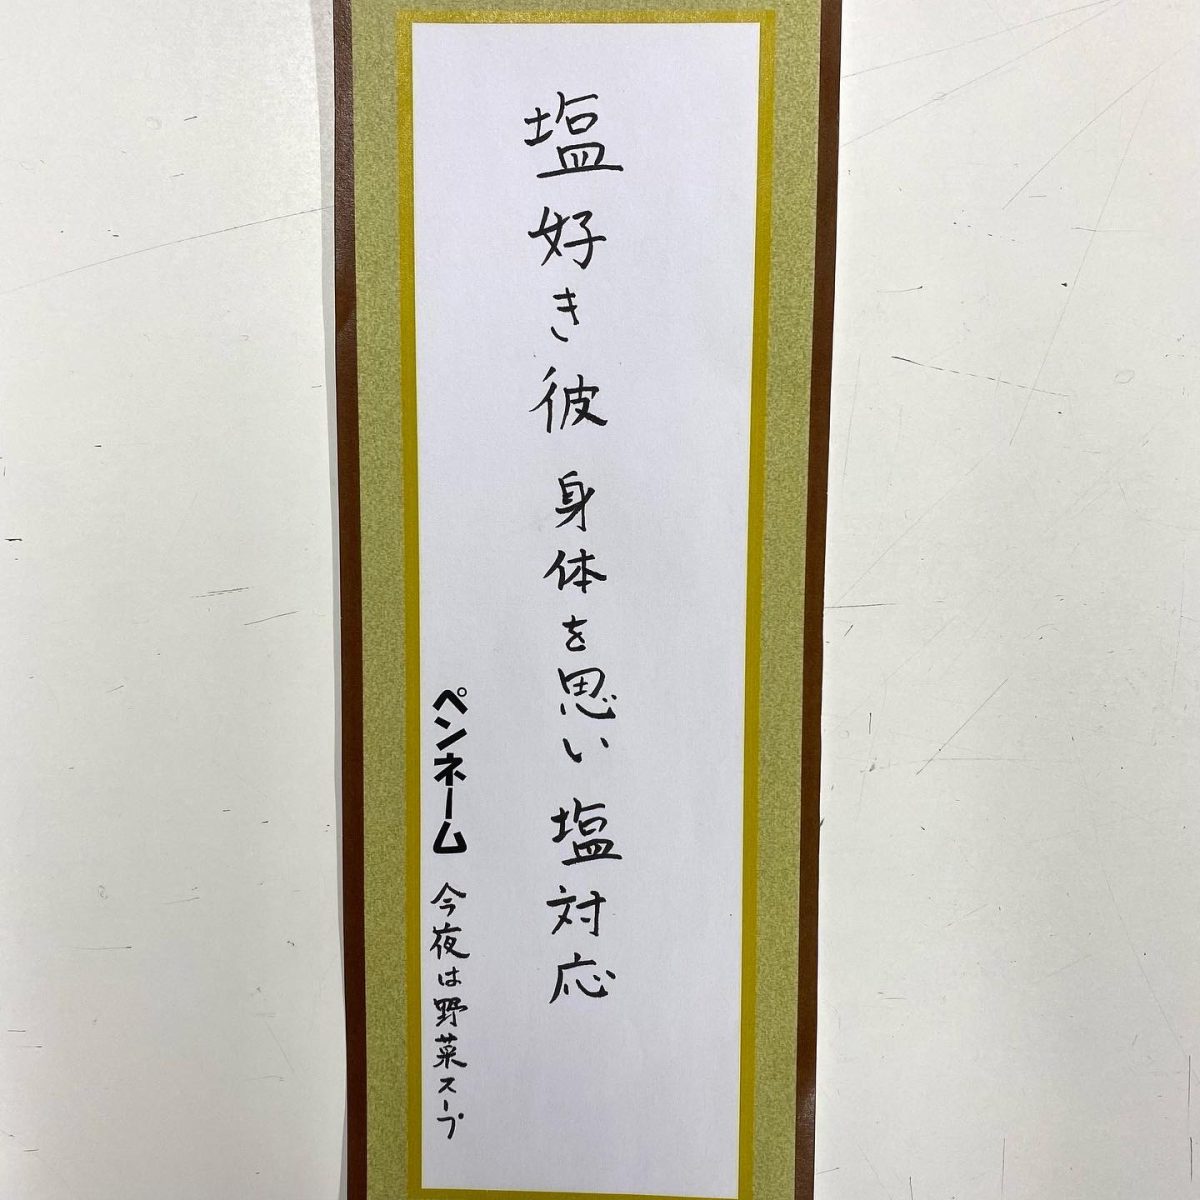 塩好き彼 身体を思い 塩対応
ペンネーム 今夜は野菜スープ